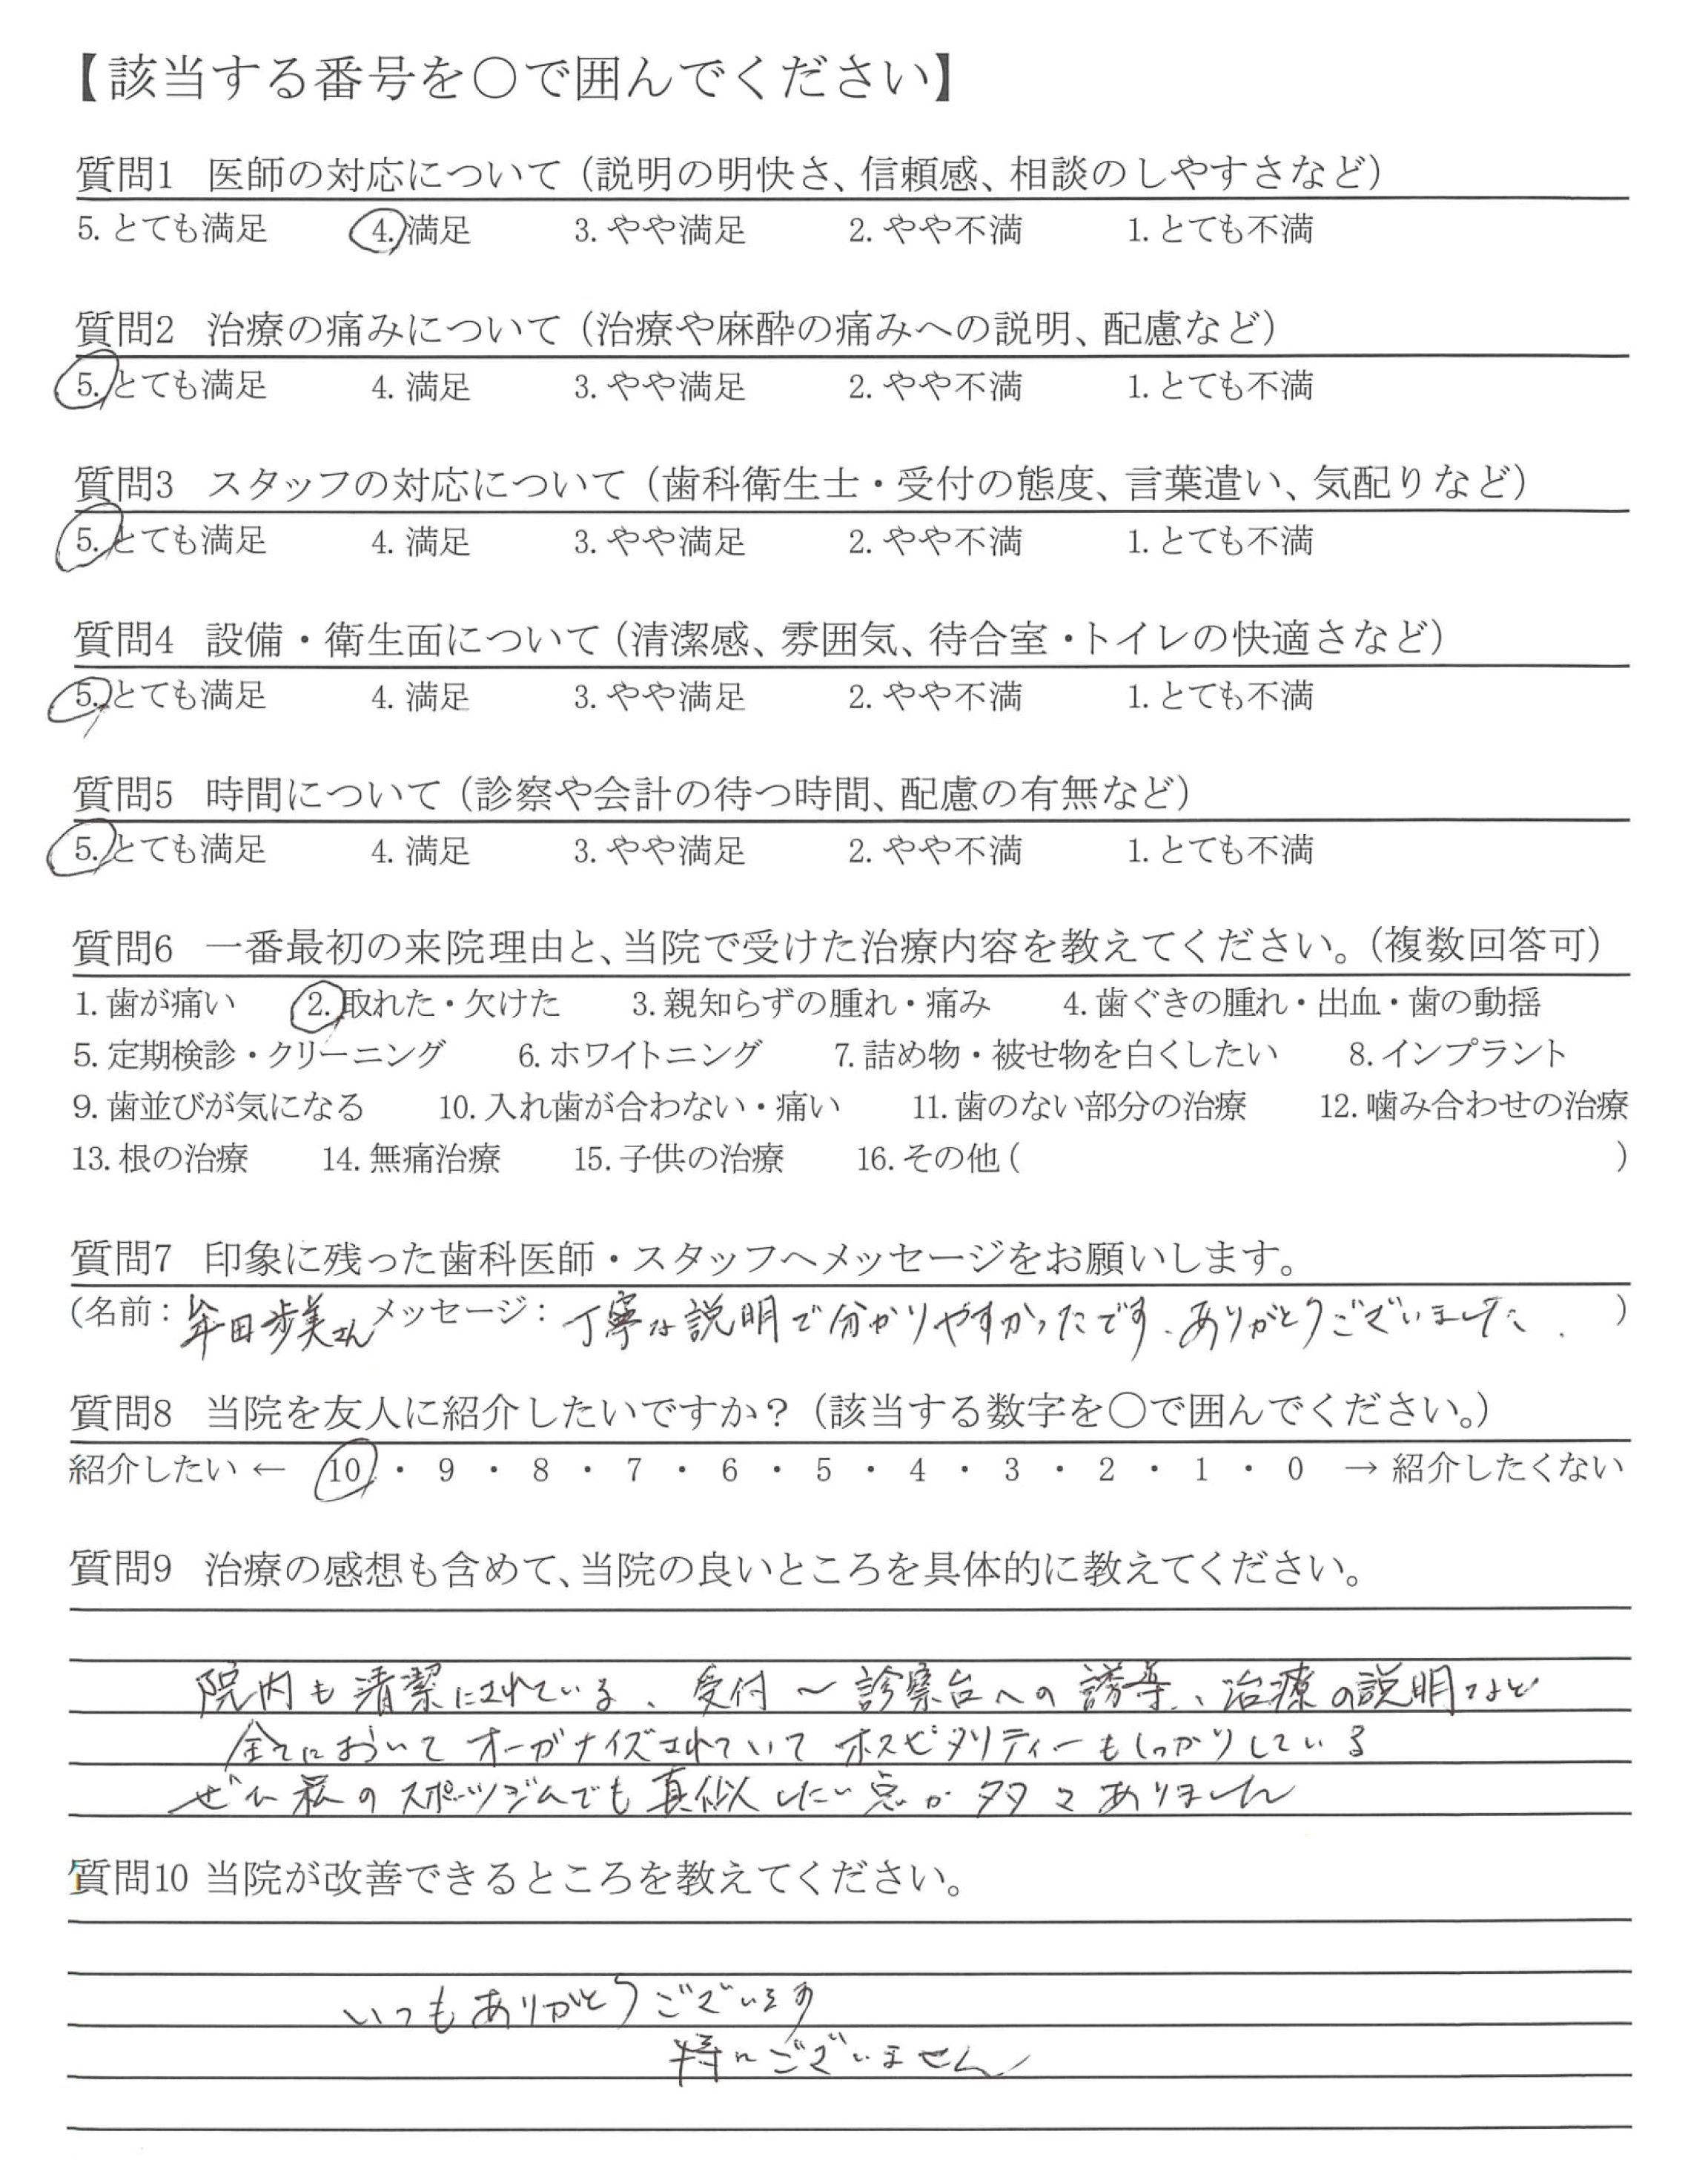 【該当する番号を○で囲んでください】
質問1 医師の対応について（説明の明快さ、信頼感、相談のしやすさなど）
5. とても満足 4. 満足 3. やや満足 2. やや不満 1. とても不満
質問2 治療の痛みについて（治療や麻酔の痛みへの説明、配慮など）
5. とても満足 4. 満足 3. やや満足 2. やや不満 1. とても不満
質問3 スタッフの対応について（歯科衛生士・受付の態度、言葉遣い、気配りなど）
5. とても満足 4. 満足 3. やや満足 2. やや不満 1. とても不満
質問4 設備・衛生面について（清潔感、雰囲気、待合室・トイレの快適さなど）
5. とても満足 4. 満足 3. やや満足 2. やや不満 1. とても不満
質問5 時間について（診察や会計の待つ時間、配慮の有無など）
5. とても満足 4. 満足 3. やや満足 2. やや不満 1. とても不満
質問6 一番最初の来院理由と、当院で受けた治療内容を教えてください。（複数回答可）
1. 歯が痛い 2. 取れた・欠けた 3. 親知らずの腫れ・痛み 4. 歯ぐきの腫れ・出血・歯の動揺
5. 定期検診・クリーニング 6. ホワイトニング 7. 詰め物・被せ物を白くしたい 8. インプラント
9. 歯並びが気になる 10. 入れ歯が合わない・痛い 11. 歯のない部分の治療 12. 噛み合わせの治療
13. 根の治療 14. 無痛治療 15. 子供の治療 16. その他（ ）
質問7 印象に残った歯科医師・スタッフへメッセージをお願いします。
（名前：田歩美さん メッセージ：丁寧な説明で分かりやすかったです。ありがとうございました。）
質問8 当院を友人に紹介したいですか？（該当する数字を○で囲んでください。）
紹介したい ← 10 ・ 9 ・ 8 ・ 7 ・ 6 ・ 5 ・ 4 ・ 3 ・ 2 ・ 1 ・ 0 → 紹介したくない
質問9 治療の感想も含めて、当院の良いところを具体的に教えてください。
院内も清潔にされている、受付～診察台への誘導、治療の説明など
全てにおいてオーガナイズされていてホスピタリティーもしっかりしている
ぜひ私のスポーツジムでも真似したい点が多々ありました
質問10 当院が改善できるところを教えてください。
いつもありがとうございます
特にございません